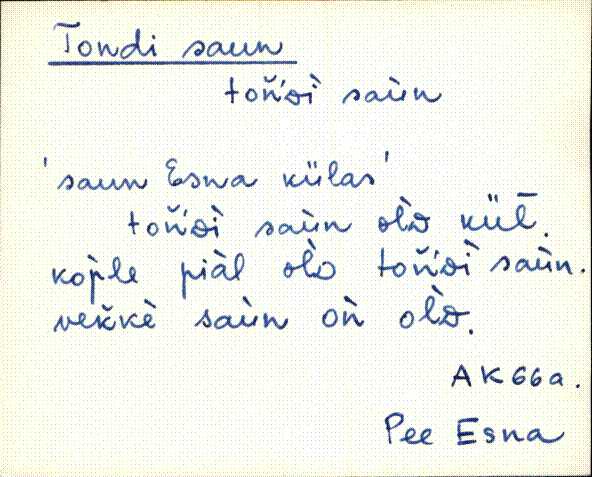 Tondi saun
toňʼᴅì saùn
'saun Esna külas'
toňʼᴅì saùn olὸᴅ küll̄.
kop̀le piàl olὸ toňʼᴅì saùn.
veǩkè saùn oǹ olὸᴅ.
AK 66a.
Pee Esna